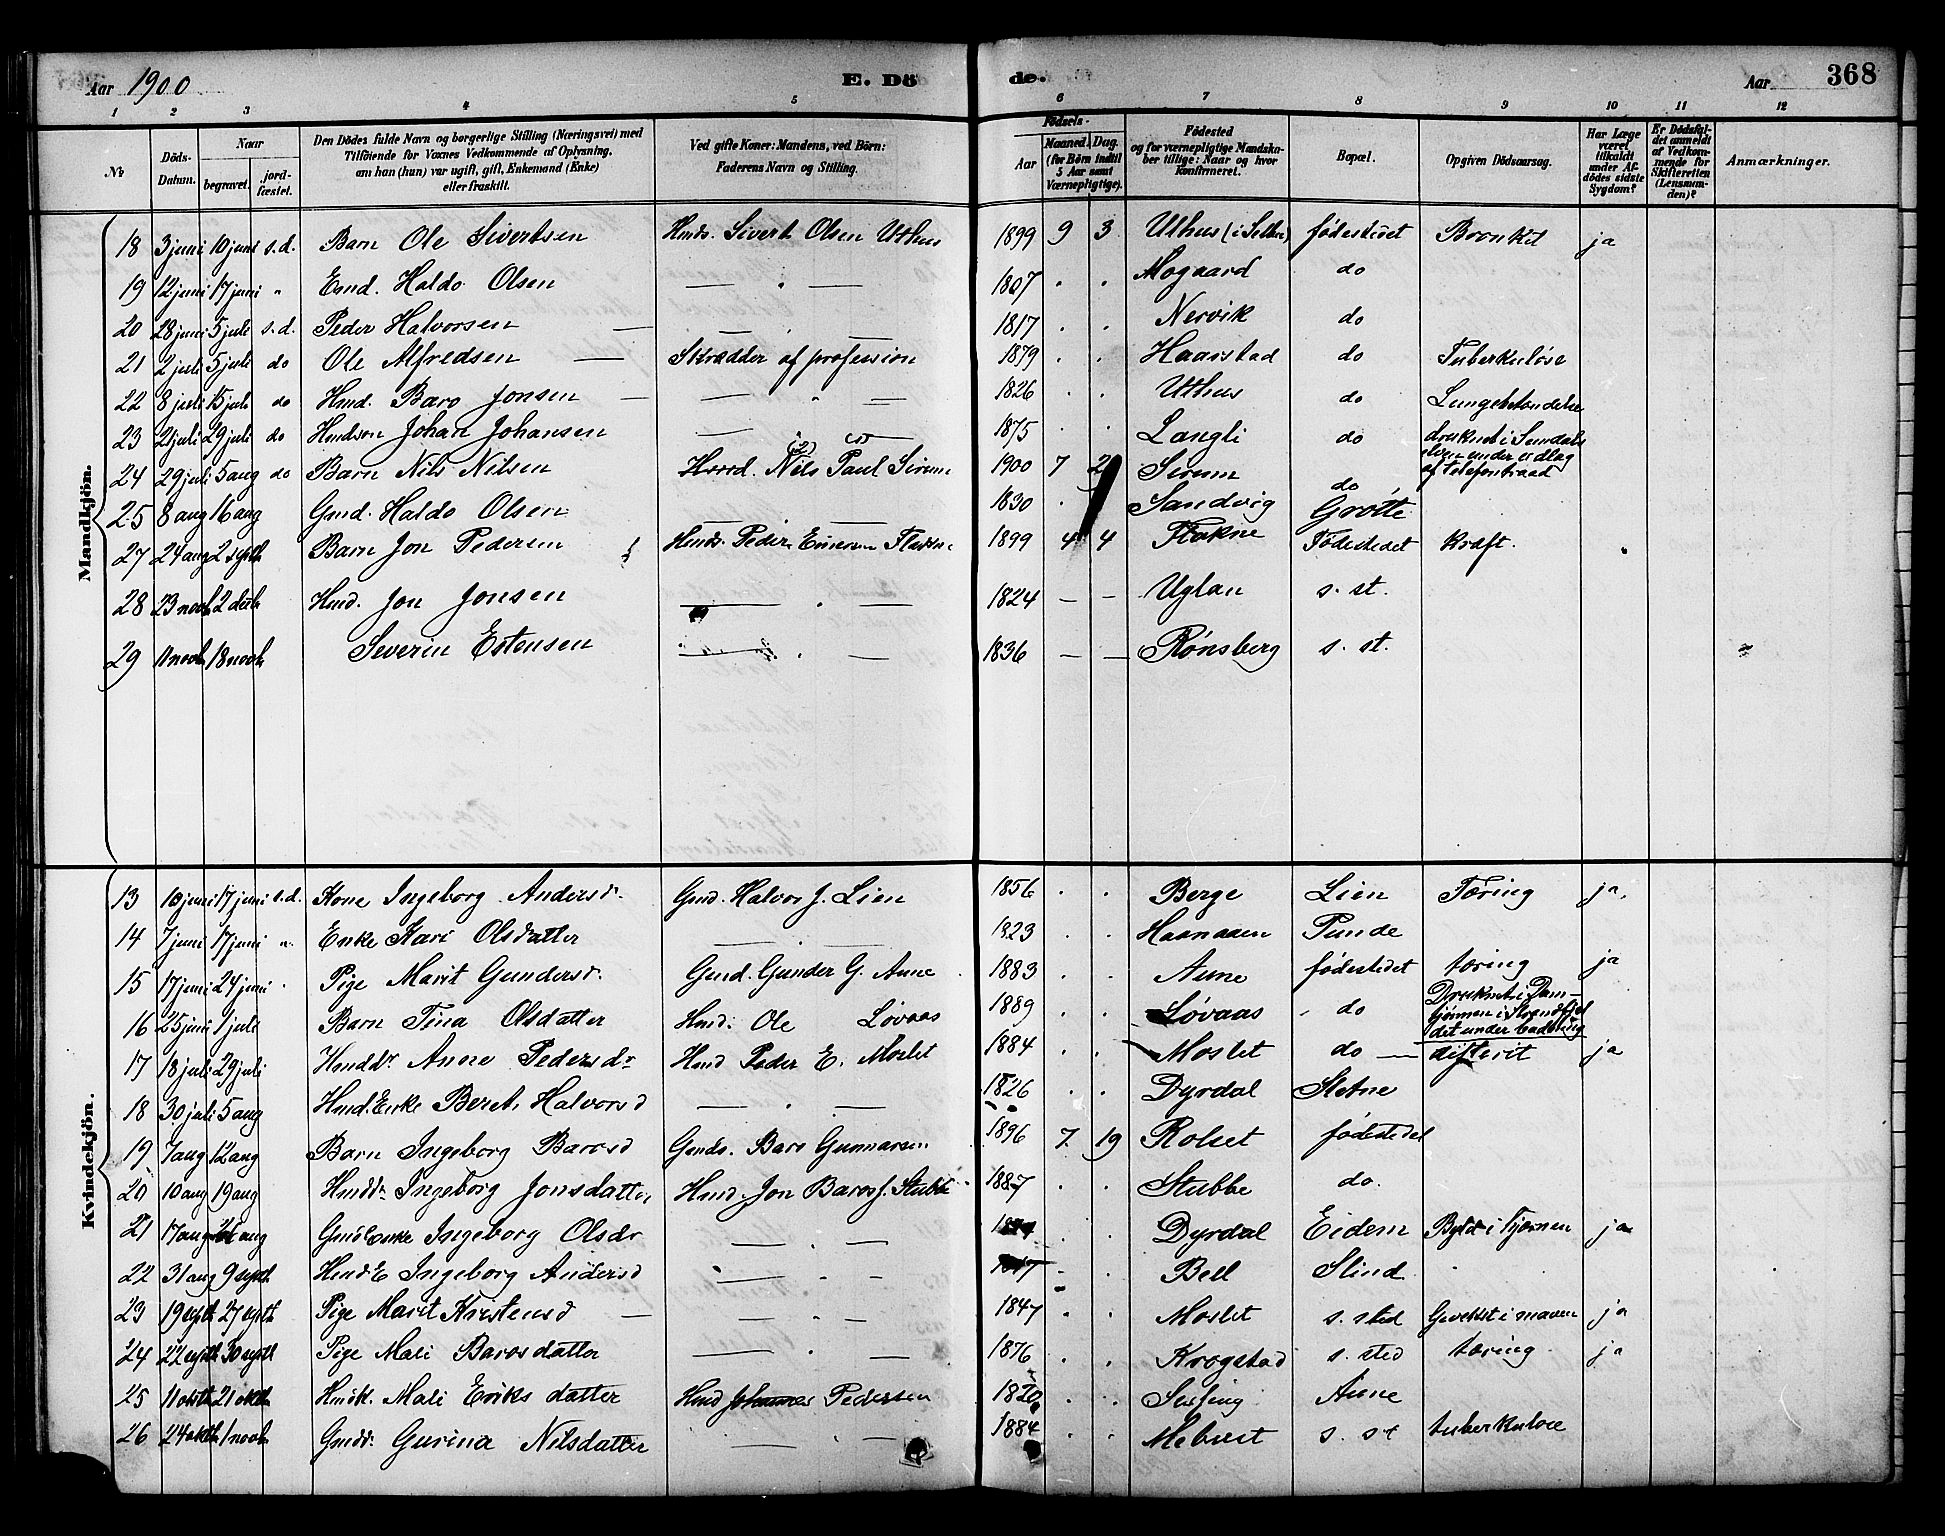 Aar 1900
E. Dö
de.
Aar
368
1 2 3 4 5 6 7 8 9 10 11 12
No
Döds-Datum.
Naar
begravet.
jord-fæstet.
Den Dödes fulde Navn og borgerlige Stilling (Næringsvei) med Tilföiende for Voxnes Vedkommende af Oplysning, om han (hun) var ugift, gift, Enkemand (Enke) eller fraskilt.
Ved gifte Koner: Mandens, ved Börn: Faderens Navn og Stilling.
Födsels-
Aar
Maaned. Dag. (for Börn indtil 5 Aar samt Værnepligtige).
Födested og for værnepligtige Mandskaber tillige: Naar og hvor konfirmeret.
Bopæl.
Opgiven Dödsaarsag.
Har Læge været tilkaldt under Afdödes sidste Sygdom?
Er Dödsfaldet anmeldt af Vedkommende for Skifteretten (Lensmanden)?
Anmærkninger.
Mandkjön.
18 3 juni 10 juni s.d. Barn Ole Sivertsen Hmds. Sivert Olsen Uthus 1899 9 3 Uthus (i Selbu) fødestedet Bronkit ja
19 12 juni 17 juni " Haldo Olsen 1807 Mogaard do
20 28 juni 5 juli s.d. Peder Halvorsen 1817 Nervik do
21 2 juli 5 juli do Ole Alfredsen Skrædder af profession 1879 Haarstad do Tuberkuløse
22 8 juli 15 juli do Hmd. Baro Jonsen 1826 Uthus do Lungebetændelse
23 2 juli 29 juli do Hmdsøn Johan Johansen 1875 Langli do druknet i Sundals elven under udlæg af telefontraad
24 29 juli 5 aug do Barn Nils Nilsen Nils Paul Sirum 1900 7 2 Sirum do
25 8 aug 16 aug Gmd. Haldo Olsen 1830 Sandvig Grøtte
27 24 aug 2 septb Barn Jon Pedersen Hmds. Peder Flakne 1899 4 4 Flakne Fødestedet Kræft.
28 23 novb 2 decb Hmd. Jon Jonsen 1824 — — Uglan s. st.
29 11 novb 18 novb Severin Estensen 1836 — — Rønsberg s. st.
Kvindekjön.
13 10 juni 17 juni s.d. Kone Ingeborg Andersdr. Gmd. Halvor J. Lien 1856 Berge Lien Tæring ja
14 7 juni 17 juni " Enke Kari Olsdatter 1823 Haanaaen Punde
15 17 juni 24 juni Pige Marit Gundersd. Gmd. Gunder G. Aune 1883 Aune fødestedet tæring ja
16 25 juni 1 juli Barn Tina Olsdatter Hmd. Ole Løvaas 1889 Løvaas do Druknet i Damtjønnen i Strandfjeldet under badning
17 18 juli 29 juli Hmddr. Anne Pedersdr Hmd Peder E. Moslet 1884 Moslet do difterit ja
18 30 juli 5 aug Hmd. Enke Beret Halvorsd 1826 Dyrdal Sletne
19 7 aug 12 aug Barn Ingeborg Barosd Gmds. Baro Gunnarsen 1896 7 19 Rolset fødestedet
20 10 aug 19 aug Hmddr. Ingeborg Jonsdatter Hmd. Jon Baros J. Stubbe 1887 Stubbe do.
21 17 aug 26 aug Gmds Enke Ingeborg Olsdr Dyrdal Eidem Byld i Hjernen ja
22 31 aug 9 septb Hmds E Ingeborg Andersd Bell Slind
23 19 septb 27 septb Pige Marit Kristensd 1847 Moslet s. sted Gevekst i maven ja
24 22 septb 30 septb Pige Mali Barosdatter 1876 Krogstad s. sted tæring ja
25 11 oktb 21 oktb Hmdk. Mali Eriksdatter Hmd Johannes Pedersen 1820 Sesseng Aune
26 24 oktb 1 novb Gmddr. Gurina Nilsdatter 1884 Mebust s. st tuberkulose